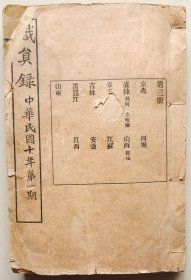 職員錄 中華民國十年第一期
第三冊
京兆 河南
直隸 熱河 山西
奉天 江蘇
吉林 安徽
黑龍江 江西
山東